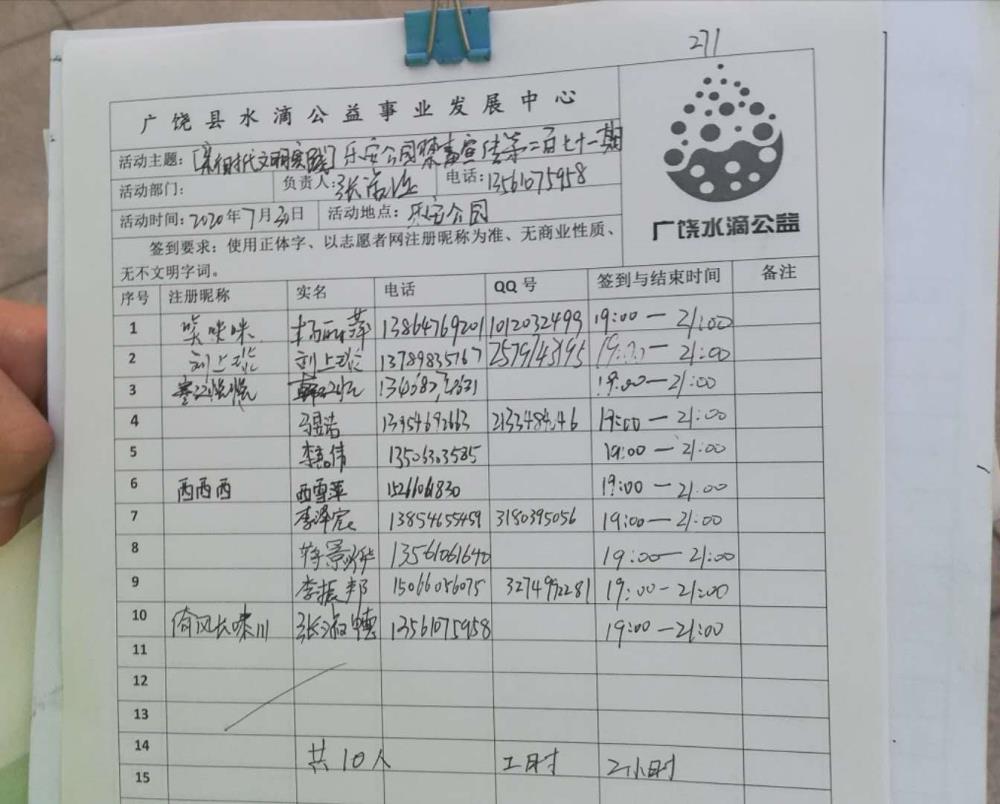 271
广饶县水滴公益事业发展中心
活动主题:[新时代文明实践]乐安公园禁毒宣传第二百七十一期
活动部门: 负责人:张 电话:13561075958
活动时间:2020年7月30日 活动地点:乐安公园
签到要求:使用正体字、以志愿者网注册昵称为准、无商业性质、
无不文明字词。
广饶水滴公益
序号 注册昵称 实名 电话 QQ号 签到与结束时间 备注
1 笑咪咪 杨丽萍 13864769201 1012032499 19:00—21:00
2 刘上 刘上 13789835767 19:00—21:00
3 19:00—21:00
4 马昱浩 13954692663 19:00—21:00
5 李嘉伟 13506303585 19:00—21:00
6 西西西 西雪萍 15266061830 19:00—21:00
7 李泽宸 13854655459 3180395056 19:00—21:00
8 韩景华 13561061640 19:00—21:00
9 李振邦 15066056075 3274992281 19:00-21:00
10 倚风长啸川 张淑 13561075958 19:00—21:00
11
12
13
14 共10人 工时 2小时
15